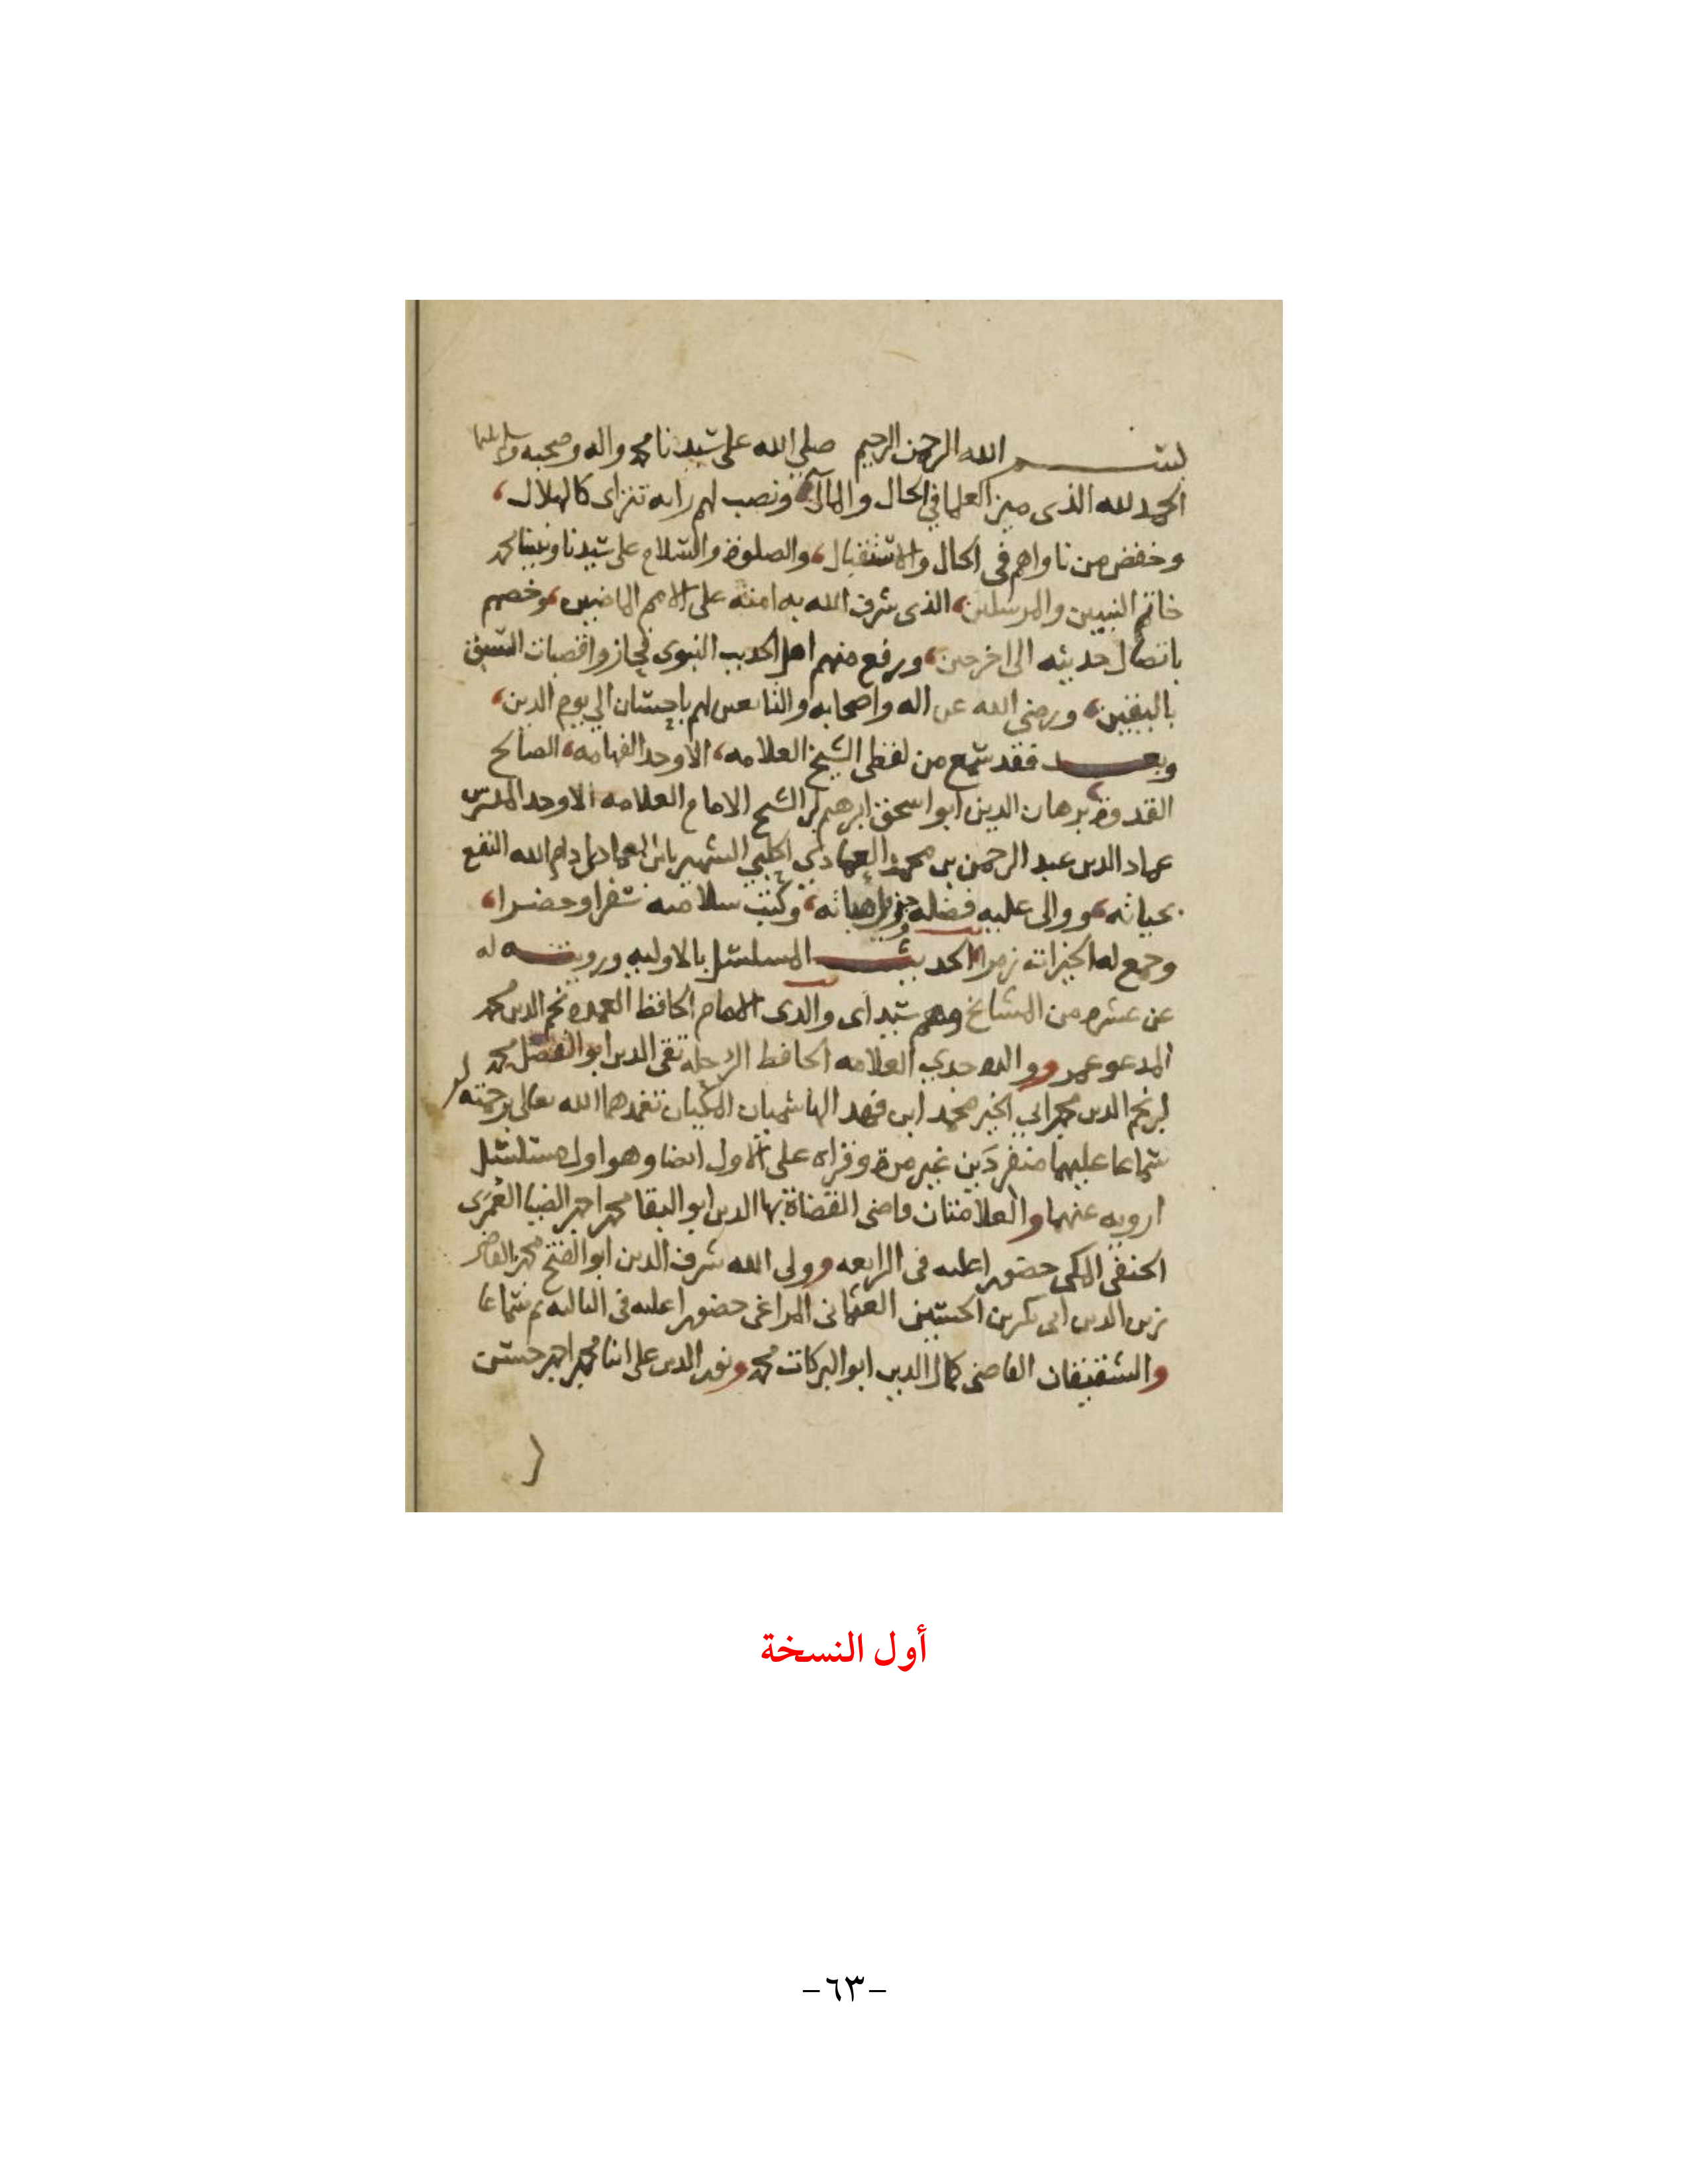 بسم الله الرحمن الرحيم صلى الله على سيدنا محمد واله وصحبه وسلم
الحمد لله الذى ميز العلما فى الحال والمآل ونصب لهم رايه تتراى كالهلال،
وخفض من ناواهم فى الحال والاستقبال، والصلوة والسلام على سيدنا ونبينا محمد
خاتم النبيين والمرسلين، الذى شرف الله به امته على الامم الماضين، وخصهم
باتصال حديثه الى اخر حين، ورفع منهم اهل الحديث النبوى فحازوا قصبات السبق
باليقين، ورضى الله عن اله واصحابه والتابعين لهم باحسان الى يوم الدين،
وبعد فقد سمع من لفظى الشيخ العلامه، الاوحد الفهامه، الصالح
القدوة برهان الدين ابو اسحق ابرهيم بن الشيخ الامام العلامه الاوحد المدرس
عماد الدين عبد الرحمن بن محمد العمادى الحلبى الشهير بابن العمادى ادام الله النفع
بحياته، ووالى عليه فضله وهباته، وكتب سلامته سفرا وحضرا،
وجمع له الخيرات زمرا الحديث المسلسل بالاوليه ورويته له
عن عشره من المشايخ وهم سيداى والدى الامام الحافظ العمده نجم الدين محمد
المدعو عمر ووالده جدى العلامه الحافظ الرحله تقى الدين ابو الفضل محمد
بن نجم الدين محمد ابى الخير محمد ابن فهد الهاشميان المكيان تغمدهما الله تعالى برحمته
سماعا عليهما منفردين غير مرة وقراه على الاول ايضا وهو اول مسلسل
ارويه عنهما والعلامتان قاضى القضاة بها الدين ابو البقا محمد احمد الضيا العمرى
الحنفى المكى حضورا عليه فى الرابعه وولى الله شرف الدين ابو الفتح محمد القاضى
زين الدين ابى بكر بن الحسين العثمانى المراغى حضورا عليه فى الثالثه ثم سماعا
والشقيقان القاضى كمال الدين ابو البركات محمد ونور الدين على ابنا محمد احمد حسن
أول النسخة
-٦٣-